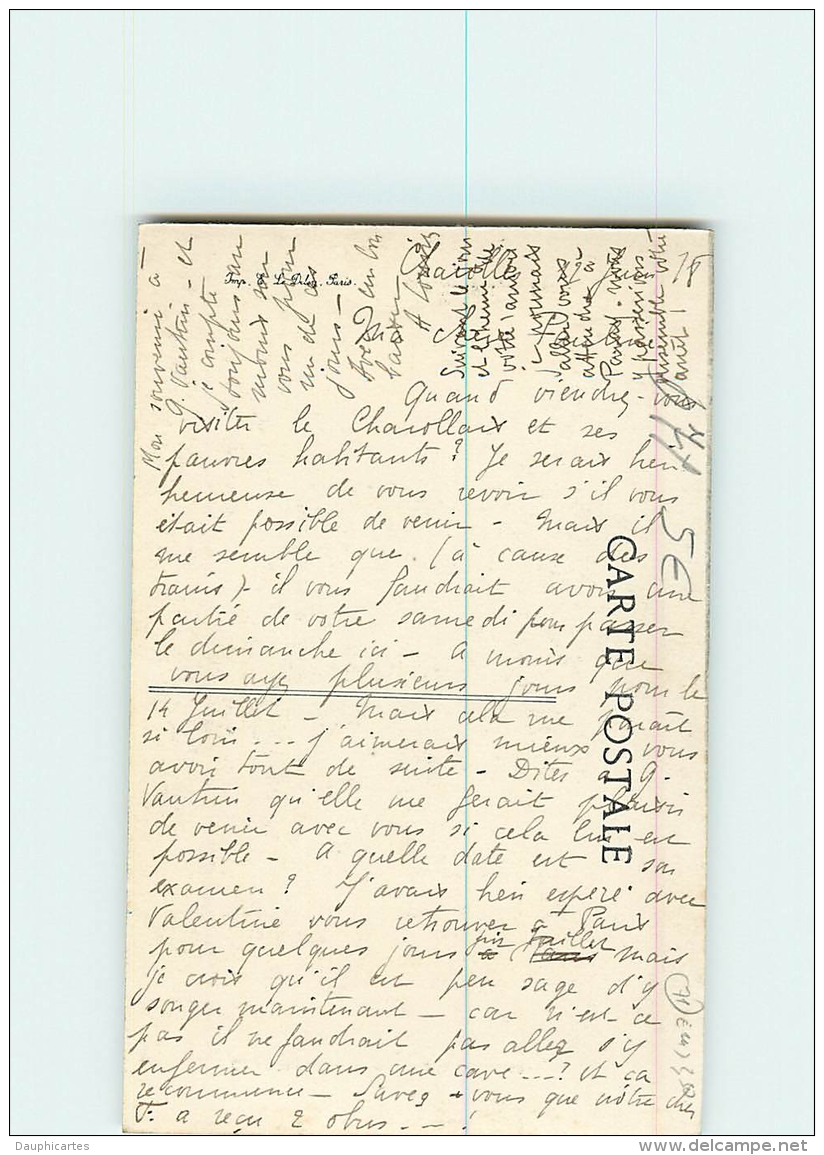 Imp. Le Deley, Paris.
Charolles 9 Juin 18
Ma chère
Quand viendrez-vous
visiter le Charollais et ses
pauvres habitants ? Je serais bien
heureuse de vous revoir s'il vous
était possible de venir - Mais il
me semble que (à cause des
trains) - il vous faudrait avoir une
partie de votre samedi pour passer
le dimanche ici - à moins que
vous ayez plusieurs jours pour le
14 Juillet - Mais cela me paraît
si loin ... j'aimerais mieux vous
avoir tout de suite - Dites à G.
Vautrin qu'elle me ferait plaisir
de venir avec vous si cela lui est
possible - A quelle date est son
examen ? J'avais bien espéré avec
Valentine vous retrouver à Paris
pour quelques jours fin Juillet mais
je crois qu'il est peu sage d'y
songer maintenant - car n'est ce
pas il ne faudrait pas aller s'y
enfermer dans une cave ...? et ça
recommence - Savez-vous que notre cher
F. a reçu 2 obus - - !
Mon souvenir à
G. Vautrin - et
je compte
toujours au
moins sur
vous pour
un de ces
jours -
A Louise
votre
j'aimais
vous
attendre à
Paray
ensemble votre
CARTE POSTALE
5€
71